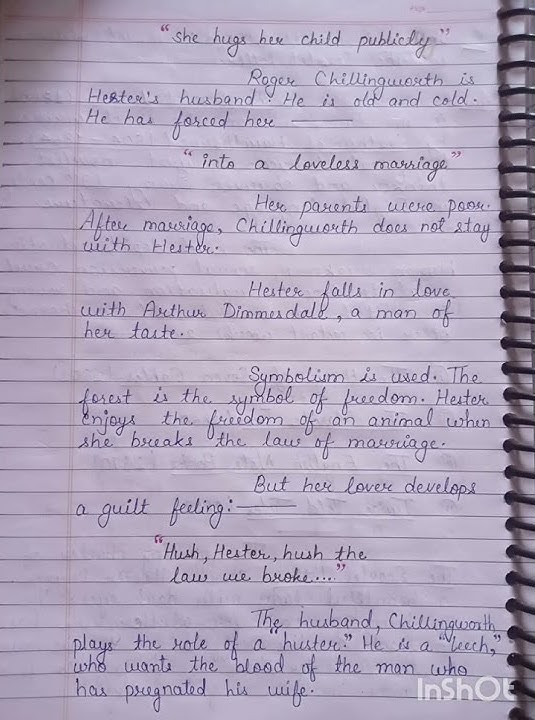 "she hugs her child publicly"
Roger Chillingworth is
Hester's husband. He is old and cold.
He has forced her ———
"into a loveless marriage"
Her parents were poor.
After marriage, Chillingworth does not stay
with Hester.
Hester falls in love
with Arthur Dimmesdale, a man of
her taste.
Symbolism is used. The
forest is the symbol of freedom. Hester
enjoys the freedom of an animal when
she breaks the law of marriage.
But her lover develops
a guilt feeling: ———
"Hush, Hester, hush the
law we broke..."
The husband, Chillingworth
plays the role of a "huster." He is a "leech,"
who wants the blood of the man who
has pregnated his wife.
InShOt